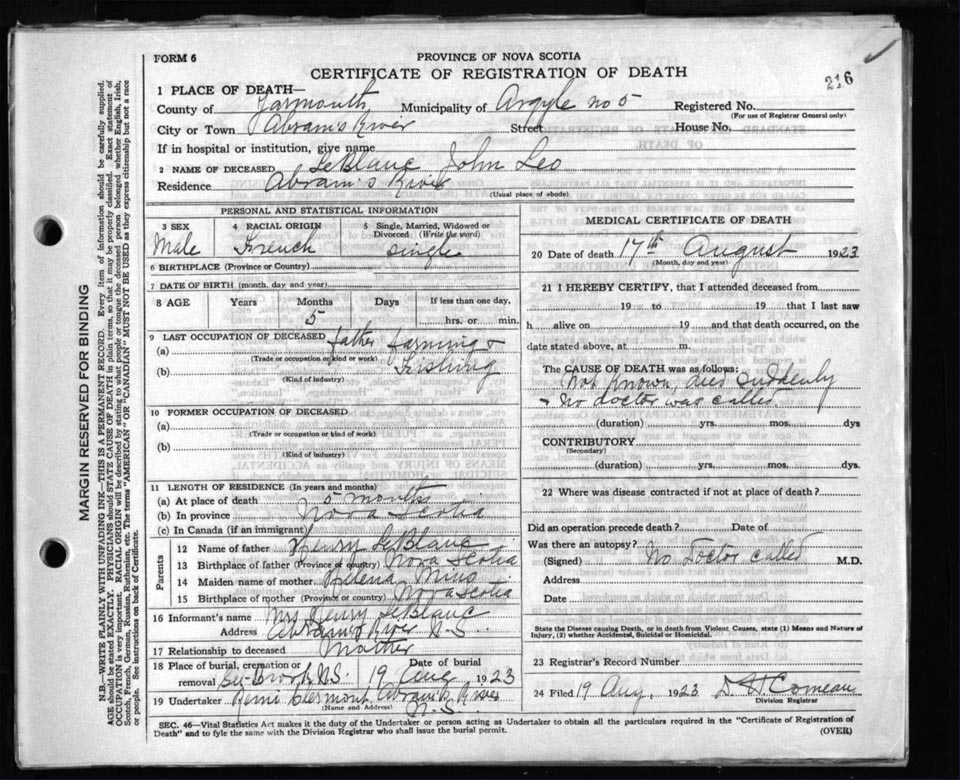 FORM 6
PROVINCE OF NOVA SCOTIA
CERTIFICATE OF REGISTRATION OF DEATH
216
1 PLACE OF DEATH—
County of Yarmouth Municipality of Argyle no 5 Registered No.
(For use of Registrar General only)
City or Town Abram's River Street House No.
If in hospital or institution, give name
2 NAME OF DECEASED LeBlanc John Leo
Residence Abram's River
(Usual place of abode)
PERSONAL AND STATISTICAL INFORMATION
3 SEX 4 RACIAL ORIGIN 5 Single, Married, Widowed or Divorced (Write the word)
Male French single
6 BIRTHPLACE (Province or Country)
7 DATE OF BIRTH (month, day and year)
8 AGE Years Months Days If less than one day,
5 hrs. or min.
9 LAST OCCUPATION OF DECEASED father farming &
(a)
(Trade or occupation or kind of work)
(b) Fishing
(Kind of industry)
10 FORMER OCCUPATION OF DECEASED
(a)
(Trade or occupation or kind of work)
(b)
(Kind of industry)
11 LENGTH OF RESIDENCE (In years and months)
(a) At place of death 5 months
(b) In province Nova Scotia
(c) In Canada (if an immigrant)
Parents
12 Name of father Henry LeBlanc
13 Birthplace of father (Province or country) Nova Scotia
14 Maiden name of mother Mius
15 Birthplace of mother (Province or country) Nova Scotia
16 Informant's name Mrs Henry LeBlanc
Address Abram's River N.S.
17 Relationship to deceased Mother
18 Place of burial, cremation or removal N.S. Date of burial 19 Aug 1923
19 Undertaker Abram's River
(Name and Address) N.S
MEDICAL CERTIFICATE OF DEATH
20 Date of death 17th August 1923
(Month, day and year)
21 I HEREBY CERTIFY, that I attended deceased from
19 to 19 that I last saw
h alive on 19 and that death occurred, on the
date stated above, at m.
The CAUSE OF DEATH was as follows:
Not known, died suddenly
- No doctor was called
(duration) yrs. mos. dys
CONTRIBUTORY
(Secondary)
(duration) yrs. mos. dys.
22 Where was disease contracted if not at place of death?
Did an operation precede death? Date of
Was there an autopsy?
(Signed) No Doctor called M.D.
Address
Date
State the Disease causing Death, or in death from Violent Causes, state (1) Means and Nature of
Injury, (2) whether Accidental, Suicidal or Homicidal.
23 Registrar's Record Number
24 Filed 19 Aug, 1923 D. H. Comeau
Division Registrar
SEC. 46—Vital Statistics Act makes it the duty of the Undertaker or person acting as Undertaker to obtain all the particulars required in the "Certificate of Registration of
Death" and to fyle the same with the Division Registrar who shall issue the burial permit.
(OVER)
MARGIN RESERVED FOR BINDING
N.B.—WRITE PLAINLY WITH UNFADING INK—THIS IS A PERMANENT RECORD. Every item of information should be carefully supplied.
AGE should be stated EXACTLY. PHYSICIANS should STATE CAUSE OF DEATH in plain terms, so that it may be properly classified. Exact statement of
OCCUPATION is very important. RACIAL ORIGIN will be described by stating to what people or tongue the deceased person belonged whether English, Irish,
Scotch, French, German, Russian, Ruthenian, etc. The terms "AMERICAN" or "CANADIAN" MUST NOT BE USED as they express citizenship but not a race
or people. See instructions on back of Certificate.